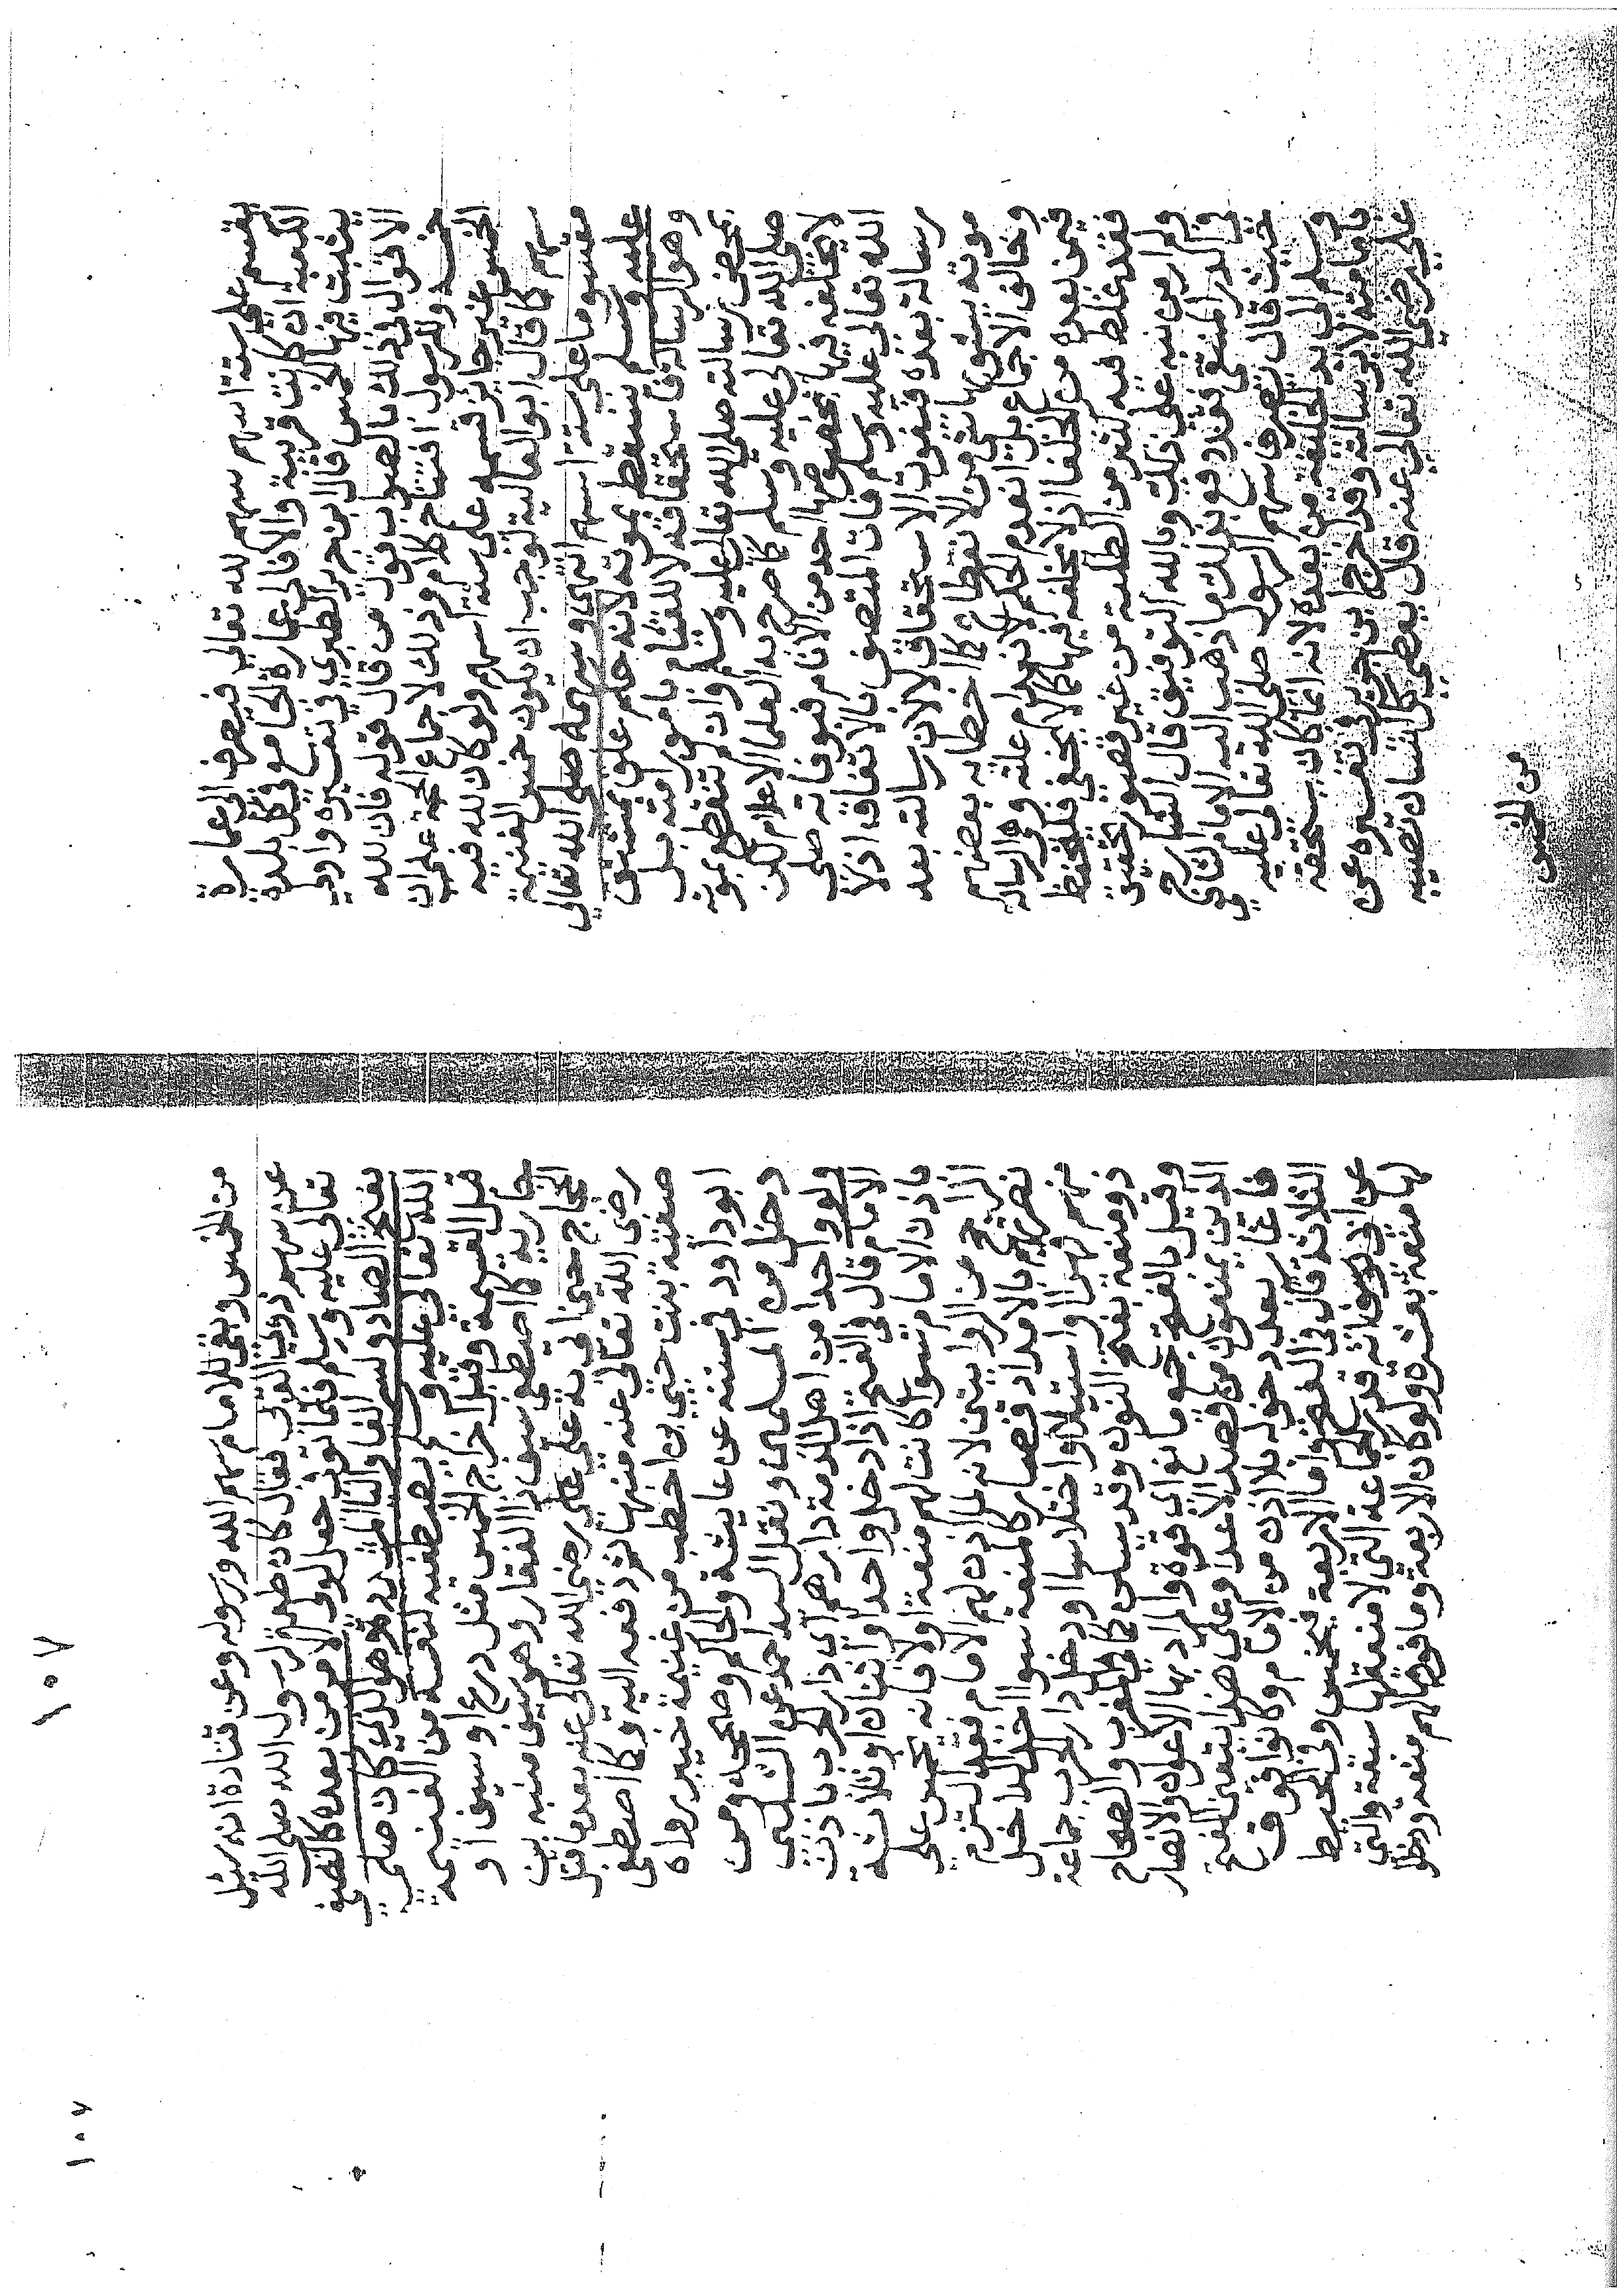 يقسم على ستة اسهم سهم لله تعالى فيصرف الى عمارة
الكعبة ان كانت قريبة والا فالى عمارة الجامع في كل بلدة
يثبت فيها الخمس قال ابن جرير الطبري في تفسيره واولى
الاقوال في ذلك بالصواب قول من قال قوله فان لله
خمسه وللرسول افتتاح كلام وذلك لاجماع الحجة على ان
الخمس غير جايز قسمه على ستة اسهم ولو كان لله فيه
سهم كما قال ابو العالية لوجب ان يكون خمس الغنيمة
مقسوما على ستة اسهم انتهى وسهمه صلى الله تعالى
عليه وسلم يسقط بموته لانه حكم علق بمشتق
وهو الرسالة فاستحقاقه لا للقيام بامور امته بل
بمحض رسالته صلى الله تعالى عليه وسلم وان لم تنقطع بموته
صلى الله تعالى عليه وسلم كما صرح به العلما الاعلام لكن
لا يخلفه فيها بخصوصها احد من الانام فبوفاته صلى
الله تعالى عليه وسلم فات المتصف بالاتفاق اذ لا
رسالة بعده فيفوت الاستحقاق لا لان رسالته بعد
موته يشوبها شي من الانقطاع كما اخطا به بعضهم
وخالف الاجماع بل انعدم الحكم لانعدام علته وهي الرسالة
فيمن بعده من الخلفا اذ لا يخلفه فيها كما لا يخفى فليحفظ
فقد غلط فيه كثير من الطلبة من غير قصور تحقيق
ولم ار من نبه على ذلك وبالله التوفيق قال الشارح
في الدر المنتقى فقد بذلك ما ذهب اليه الامام الشافعي
حيث قال يصرف سهم الرسول صلى الله تعالى عليه
وسلم الى يد الخليفة من بعده لانه انما كان يستحقه
بامامته لا برسالته وقد اخرج ابن جرير في تفسيره عن
علي رضي الله تعالى عنه قال يعطى كل انسان نصيبه
من الخمس
١٠٧
من الخمس ويبقى للامام سهم الله ورسوله وعن قتادة انه سئل
عن سهم ذوي القربى فقال كان طعمة لرسول الله صلى الله
تعالى عليه وسلم فلما توفي جعل لولي الامر من بعده كالصفي
بفتح الصاد وكسر الفا والياء المشددة هو الذي كان صلى
الله تعالى عليه وسلم يصطفيه لنفسه من الغنيمة
قبل القسمة وقبل اخراج الخمس مثل درع او سيف او
جارية كما اصطفى سيفه ذا الفقار وهو سيف منبه بن
الحجاج حين اتى به علي رضي الله تعالى عنه بعد ما قتل
رضي الله تعالى عنه منبها ثم دفعه اليه وكما اصطفى
صفية بنت حيي بن اخطب من غنيمة خيبر رواه
ابو داود في سننه عن عايشة والحاكم وصححه ومن
دخل من المسلمين ونقل السيد احمد عن الشلبي
ولو واحدا من اهل الذمة دارهم اي دار الحرب باذن
الامام قال في الفتح اذا دخل واحد او اثنان او ثلاثة
باذن الامام سواء كانت لهم منعة اولا فانه يخمس على
الراجح من الروايتين لانه لما اذن لهم الامام فقد التزم
نصرتهم بالامداد فصار كالمنعة سوا اخذ الداخل
منهم قهرا او استيلاء او اختلاسا او دخل دار الحرب جماعة
ذو منعة بفتح النون وقد تسكن كما في المغرب والصحاح
وقيل بالفتح جمع مانع اي قوة والمراد بها الاعوان والانصار
الذين يمنعون من قصد الاعداء وعلى هذا يتعين الفتح
فاغار بعد دخوله بلا اذن من الامام وكانوا فوق
الثلاثة قال في الفتح واما الاربعة فيخمس وفي المحيط
عن ابي يوسف انه قدر الجماعة التي لا منعة لها بسبعة والتي
لها منعة بعشرة ولو كان الاربعة وما فوقها لهم منعة ودخلوا
١٠٧